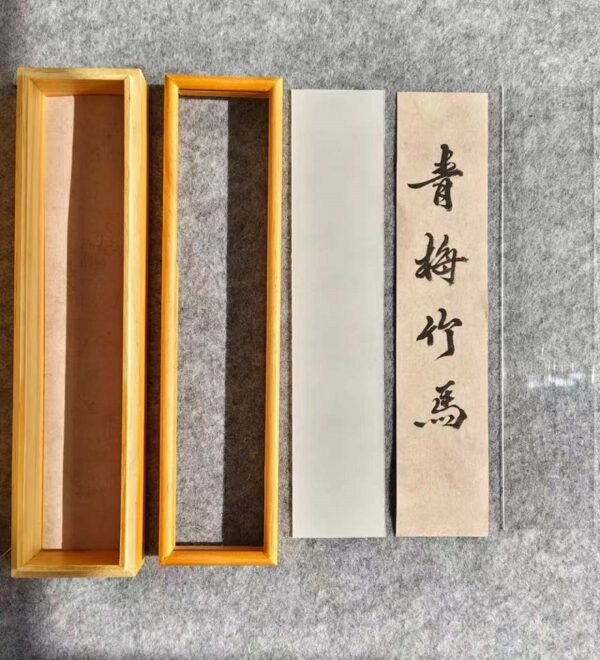 青梅竹馬